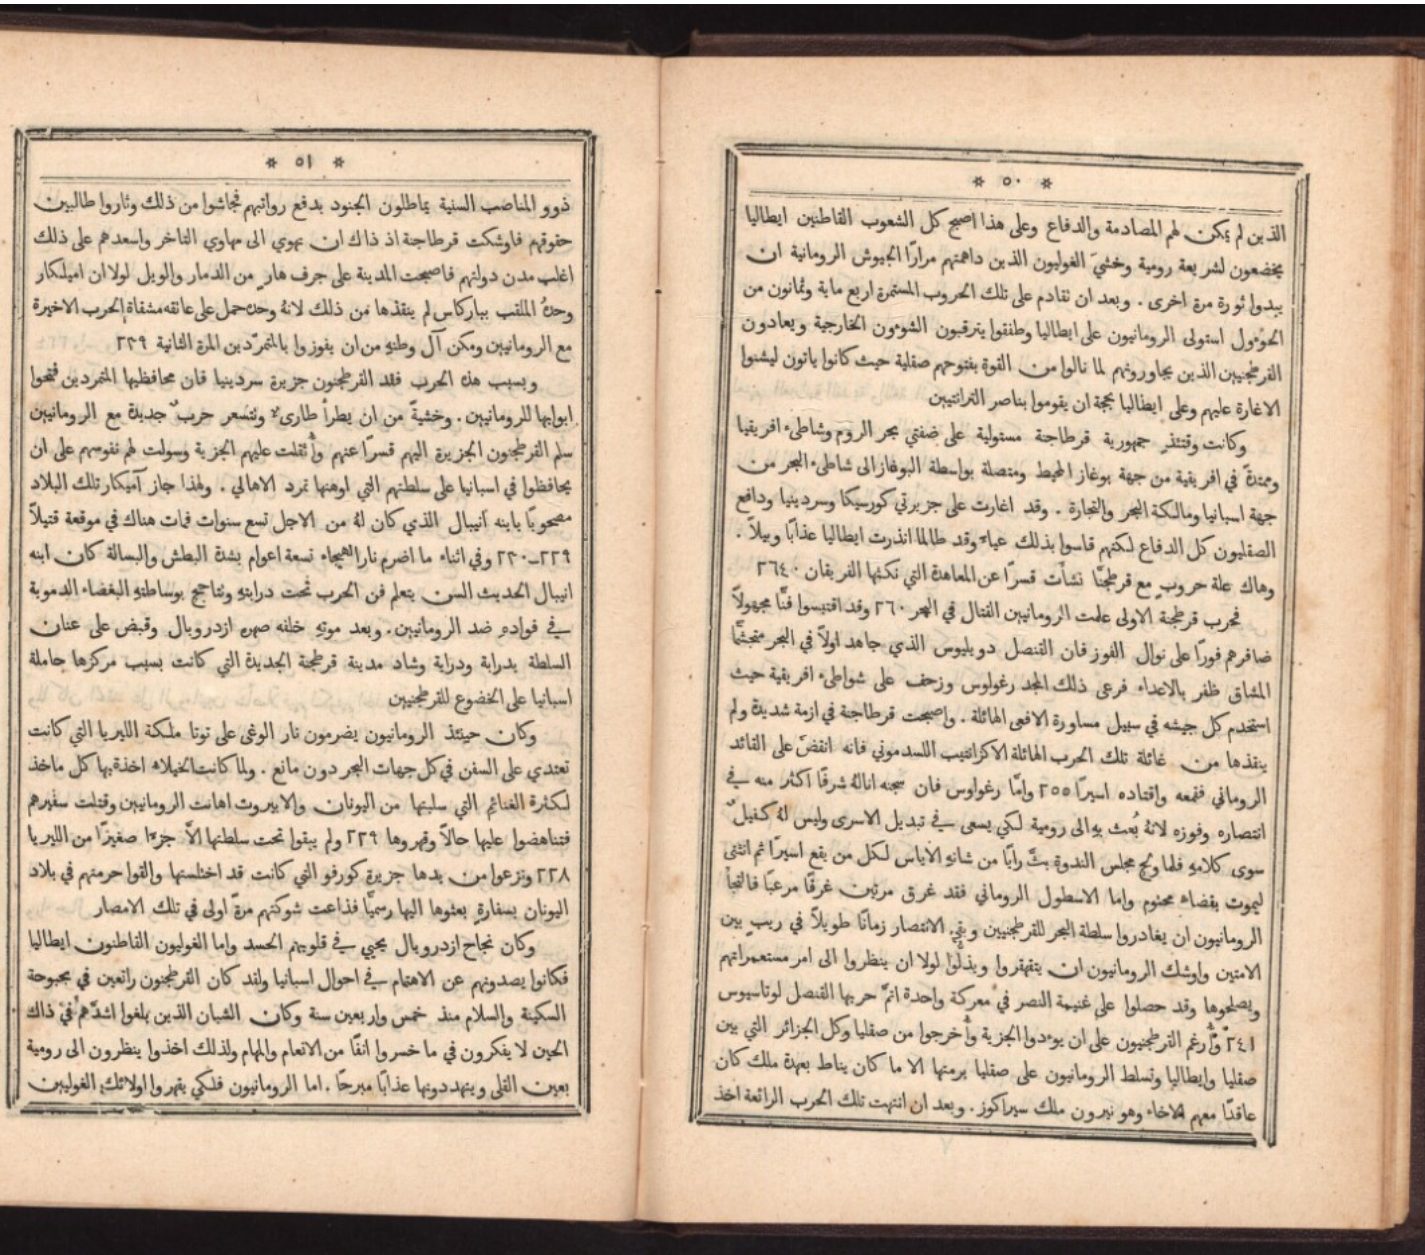 * ٥٠ *
الذين لم يمكن لهم المصادمة والدفاع وعلى هذا اصبح كل الشعوب القاطنين ايطاليا
يخضعون لشريعة رومية وخشيَ الغوليون الذين داهمتهم مرارًا الجيوش الرومانية ان
يبدوا ثورة مرة اخرى . وبعد ان تقادم على تلك الحروب المستمرة اربع ماية وثمانون من
الحوُول استولى الرومانيون على ايطاليا وطفقوا يترقبون الشوءون الخارجية ويعادون
القرطجنيين الذين يجاورونهم لما نالوا من القوة بفتوحهم صقلية حيث كانوا ياتون ليشنوا
الاغارة عليهم وعلى ايطاليا بحجة ان يقوموا بناصر الترانتيين
وكانت وقتئذٍ جمهورية قرطاجنة مستولية على ضفتي بحر الروم وشاطىء افريقيا
وممتدة في افريقية من جهة بوغاز المحيط ومتصلة بواسطة البوغاز الى شاطىء البحر من
جهة اسبانيا ومالكة البحر والتجارة . وقد اغارت على جزيرتي كورسيكا وسردينيا ودافع
الصقليون كل الدفاع لكنهم قاسوا بذلك عياءً وقد طالما انذرت ايطاليا عذابًا وبيلاً .
وهاك علة حروبٍ مع قرطجنَّا نشأَت قسرًا عن المعاهدة التي نكثها الفريقان ٢٦٤٠
فحرب قرطجنة الاولى علمت الرومانيين القتال في البحر ٢٦٠ وقد اقتبسوا فنًّا مجهولاً
ضافرهم فورًا على نوال الفوز فان القنصل دويليوس الذي جاهد اولاً في البحر متجشمًا
المشاق ظفر بالاعداء فرعى ذلك المجد رغولوس وزحف على شواطىء افريقية حيث
استخدم كل جيشه في سبيل مساورة الافعى الهائلة . واصبحت قرطاجنة في ازمة شديدة ولم
ينقذها من غائلة تلك الحرب الهائلة الاكزانتيب اللسدموني فانه انقضَ على القائد
الروماني فقمعه واقتاده اسيرًا ٢٥٥ وامَّا رغولوس فان سجنه انالهُ شرفًا اكثر منه في
انتصاره وفوزه لانهُ بُعث بهِ الى رومية لكي يسعى في تبديل الاسرى وليس لهُ كفيلٌ
سوى كلامهِ فلما ولج مجلس الندوة بثَّ رايًا من شانهِ الاياس لكل من يقع اسيرًا ثم انثنى
ليموت بقضاء محتوم واما الاسطول الروماني فقد غرق مرتين غرقًا مرعبًا فالتجأ
الرومانيون ان يغادروا سلطة البحر للقرطجنيين وبقي الانتصار زمانًا طويلاً في ريبٍ بين
الامتين واوشك الرومانيون ان يتقهقروا ويذلُّوا لولا ان ينظروا الى امر مستعمراتهم
ويصلحوها وقد حصلوا على غنيمة النصر في معركة واحدة اتمَّ حربها القنصل لوتاسيوس
٢٤١ وأُرغم القرطجنيون على ان يوءدوا الجزية وأُخرجوا من صقليا وكل الجزائر التي بين
صقليا وايطاليا وتسلط الرومانيون على صقليا برمتها الا ما كان يناط بعهدة ملك كان
عاقدًا معهم الاخاء وهو نيرون ملك سيراكوز . وبعد ان انتهت تلك الحرب الرائعة اخذ
* ٥١ *
ذوو المناصب السنية يماطلون الجنود بدفع رواتبهم فجاشوا من ذلك وثاروا طالبين
حقوقهم فاوشكت قرطاجنة اذ ذاك ان تهوي الى مهاوي التاخر واسعدهم على ذلك
اغلب مدن دولتهم فاصبحت المدينة على جرف هارٍ من الدمار والويل لولا ان اميلكار
وحدهُ الملقب بباركاس لم ينقذها من ذلك لانهُ وحده حمل على عاتقه مشقاة الحرب الاخيرة
مع الرومانيين ومكن آل وطنهِ من ان يفوزوا بالمتمرّدين المرة الثانية ٢٣٩
وبسبب هذه الحرب فقد القرطجنون جزيرة سردينيا فان محافظيها المتمردين فتحوا
ابوابها للرومانيين . وخشيةً من ان يطرأَ طارىءٌ وتتسعر حربٌ جديدة مع الرومانيين
سلم القرطجنون الجزيرة اليهم قسرًا عنهم وأُثقلت عليهم الجزية وسولت لهم نفوسهم على ان
يحافظوا في اسبانيا على سلطتهم التي اوهنها تمرد الاهالي . ولهذا جاز آميلكار تلك البلاد
مصحوبًا بابنه آنيبال الذي كان لهُ من الاجل تسع سنوات فمات هناك في موقعة قتيلاً
٢٢٩ـ٢٣٠ وفي اثناء ما اضرم نار الهيجاء تسعة اعوام بشدة البطش والبسالة كان ابنه
انيبال الحديث السن يتعلم فن الحرب تحت درايتهِ وتتاجج بوساطتهِ البغضاء الدموية
في فوادهِ ضد الرومانيين . وبعد موتهِ خلفه صهره ازدروبال وقبض على عنان
السلطة بدراية ودراية وشاد مدينة قرطجنة الجديدة التي كانت بسبب مركزها حاملة
اسبانيا على الخضوع للقرطجنيين
وكان حينئذ الرومانيون يضرمون نار الوغى على توتا ملكة الليريا التي كانت
تعتدي على السفن في كل جهات البحر دون مانع . ولما كانت الخيلاء اخذة بها كل ماخذ
لكثرة الغنائم التي سلبتها من اليونان والابيروت اهانت الرومانيين وقتلت سفيرهم
فتناهضوا عليها حالاً وقهروها ٢٢٩ ولم يبقوا تحت سلطتها الاَّ جزءًا صغيرًا من الليريا
٢٢٨ ونزعوا من يدها جزيرة كورفو التي كانت قد اختلستها والقوا حرمتهم في بلاد
اليونان بسفارةٍ بعثوها اليها رسميًّا فذاعت شوكتهم مرةً اولى في تلك الامصار
وكان نجاح ازدروبال يحيي في قلوبهم الحسد واما الغوليون القاطنون ايطاليا
فكانوا يصدونهم عن الاهتمام في احوال اسبانيا ولقد كان القرطجنون راتعين في بحبوحة
السكينة والسلام منذ خمس واربعين سنة وكان الشبان الذين بلغوا اشدَّهم في ذاك
الحين لا يفكرون في ما خسروا انفًا من الانعام والمهام ولذلك اخذوا ينظرون الى رومية
بعين القلى ويتهددونها عذابًا مبرحًا . اما الرومانيون فلكي يقهروا اولائك الغوليين